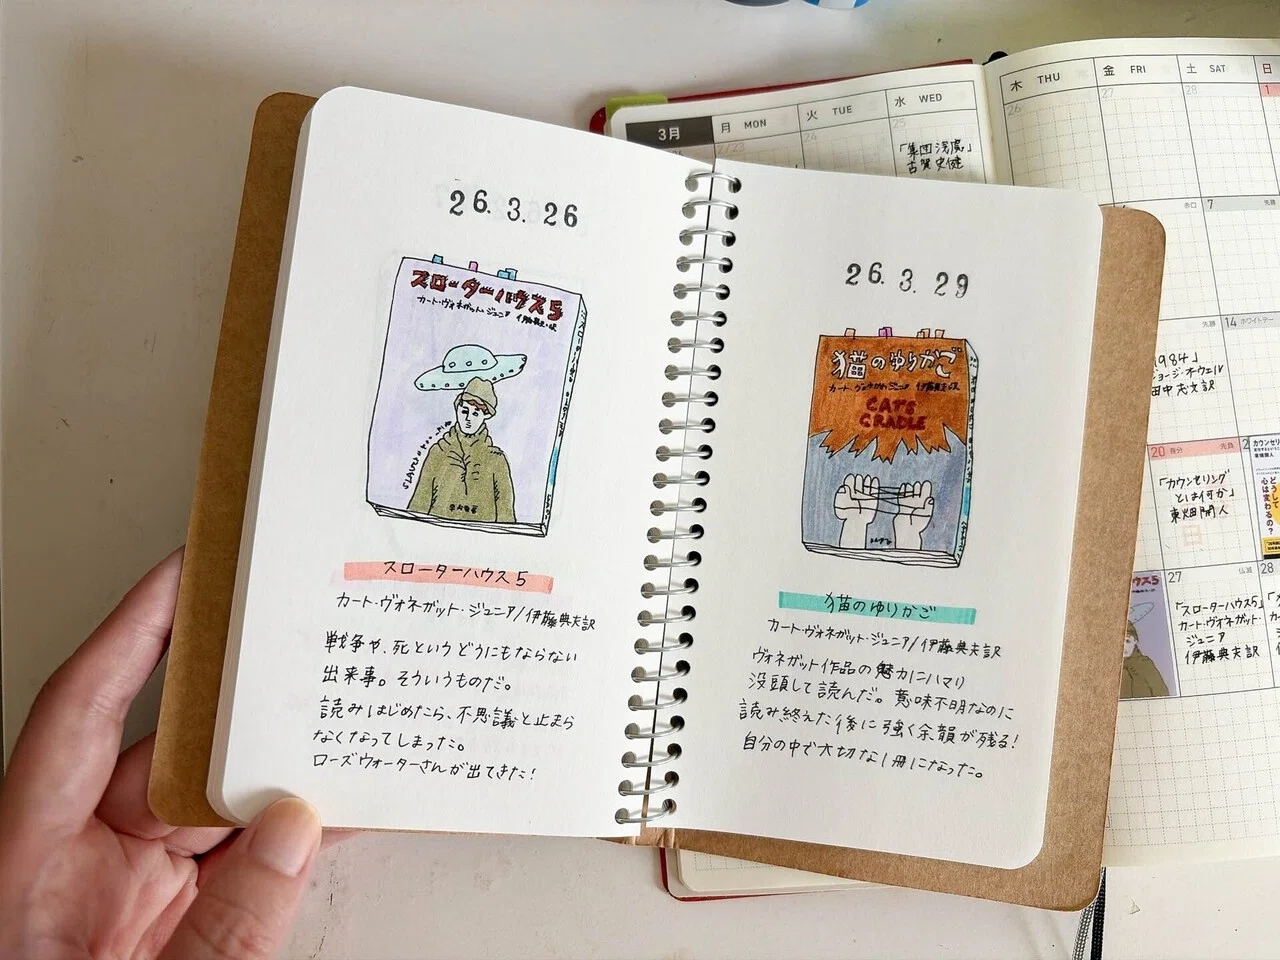 26.3.26
スローターハウス5
カート・ヴォネガット・ジュニア 伊藤典夫・訳
スローターハウス5
カート・ヴォネガット・ジュニア/伊藤典夫訳
戦争や、死というどうにもならない
出来事。そういうものだ。
読みはじめたら、不思議と止まら
なくなってしまった。
ローズウォーターさんが出てきた!
26.3.29
猫のゆりかご
カート・ヴォネガット・ジュニア 伊藤典夫・訳
CAT'S
CRADLE
猫のゆりかご
カート・ヴォネガット・ジュニア/伊藤典夫訳
ヴォネガット作品の魅力にハマり
没頭して読んだ。意味不明なのに
読み終えた後に強く余韻が残る!
自分の中で大切な1冊になった。
3月
月 MON
火 TUE
水 WED
木 THU
金 FRI
土 SAT
日
23
24
25
26
27
28
1
「集団浅慮」
古賀史健
赤口
7
先勝
先勝
14 ホワイトデー
1984」
ジョージ・オーウェル
田中志文訳
20 春分
先負
「カウンセリング
とは何か」
東畑開人
日
カウンセリ
どうして
心は変わるのか?
ハウス5
27
仏滅
28
「スローターハウス5」
カート・ヴォネガット・
ジュニア
伊藤典夫訳